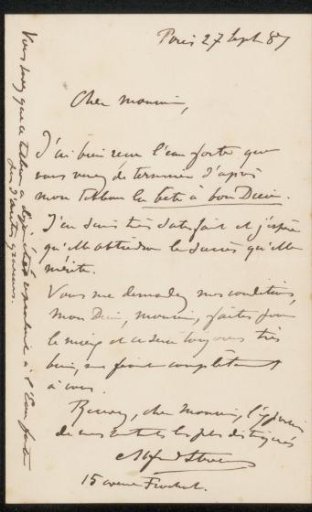 Paris 27 Sept 87
Cher monsieur,
J'ai bien reçu l'eau forte que
vous venez de terminer d'après
mon tableau la bête à bon Dieu.
J'en suis très satisfait et j'espère
qu'elle obtiendra le succès qu'elle
mérite.
Vous me demandez mes conditions,
mon Dieu, monsieur, faites pour
le mieux et ce sera toujours très
bien, me fiant complètement
à vous.
Recevez, cher monsieur, l'
de mes sentiments les plus distingués
Alfred Stevens
15 avenue Frochot.
Vous savez que ce tableau a déjà été reproduit à l'eau forte
par d'autres graveurs.